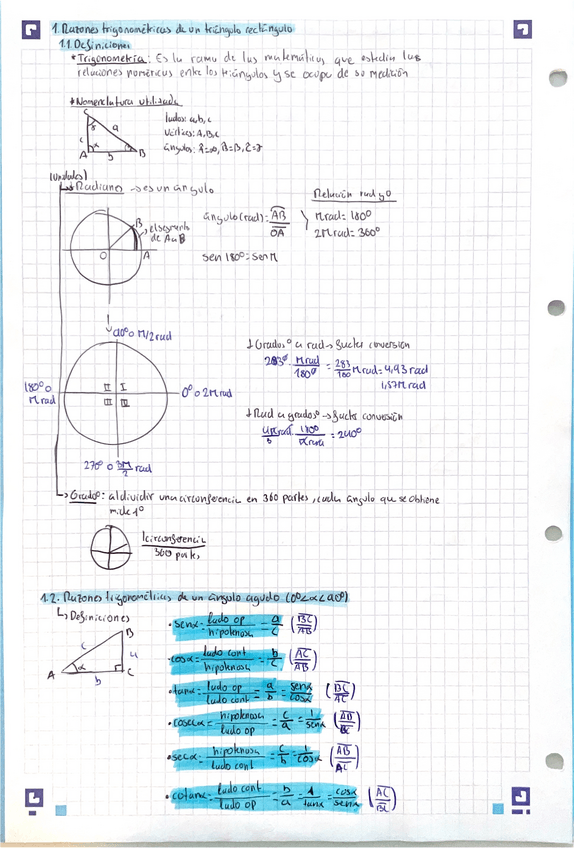 1. Razones trigonométricas de un triángulo rectángulo
1.1. Definiciones
*Trigonometría: Es la rama de las matemáticas que estudia las
relaciones numéricas entre los triángulos y se ocupa de su medición
*Nomenclatura utilizada
C
γ a
c
α
A b B
lados: a,b,c
vértices: A,B,C
(unidades)
Radiano → es un ángulo
B
O A
el segmento
de A a B
ángulo(rad): AB/OA
sen 180º = sen π
Relación rad y º
π rad = 180º
2π rad = 360º
90º o π/2 rad
180º o
π rad
II I
III IV
0º o 2π rad
270º o 3π/2 rad
↓ Grados º a rad → Factor conversión
283º · π rad/180º = 283/180 π rad = 4,93 rad
1,57π rad
↓ Rad a grados º → Factor conversión
180º/π rad = 240º
Grado º: al dividir una circunferencia en 360 partes, cada ángulo que se obtiene
mide 1º
1 circunferencia
360 partes
1.2. Razones trigonométricas de un ángulo agudo (0º<α<90º)
↳ Definiciones
B
c a
A α C
b
• sen α = lado op/hipotenusa = a/c (BC/AB)
• cos α = lado cont/hipotenusa = b/c (AC/AB)
• tan α = lado op/lado cont = a/b = sen α/cos α (BC/AC)
• cosec α = hipotenusa/lado op = c/a = 1/sen α (AB/BC)
• sec α = hipotenusa/lado cont = c/b = 1/cos α (AB/AC)
• cotan α = lado cont/lado op = b/a = 1/tan α = cos α/sen α (AC/BC)